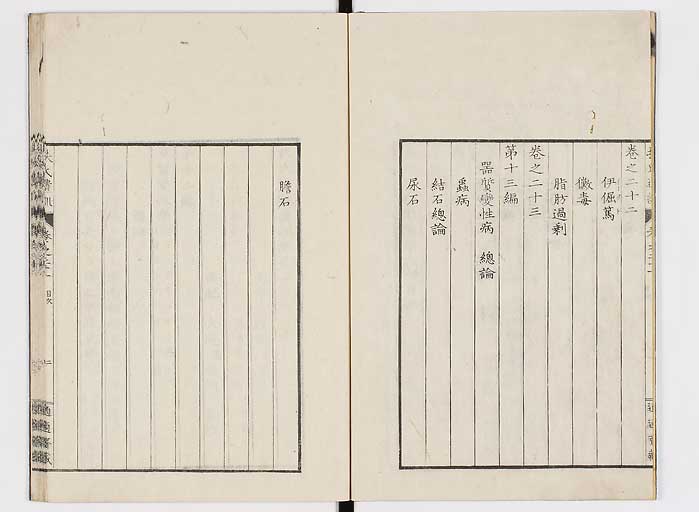 卷之二十二
伊倔篤
黴毒
脂肪過剩
卷之二十三
第十三編
器質變性病 總論
蟲病
結石總論
尿石
膽石
目次